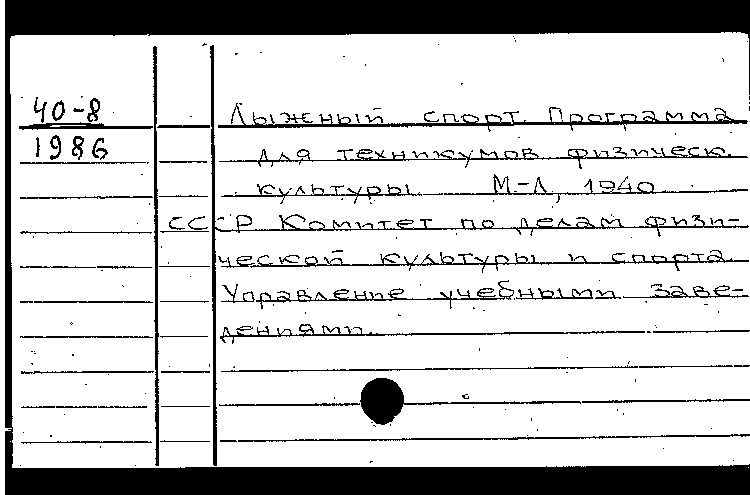 40-8
1986
Лыжный спорт. Программа
для техникумов физическ.
культуры. М-Л, 1940
СССР Комитет по делам физи-
ческой культуры и спорта.
Управление учебными заве-
дениями.